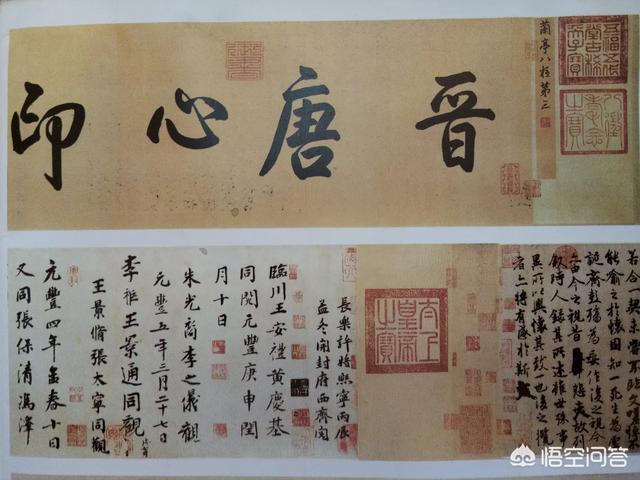 五福五代堂古稀天子寶
八徵耄念之寶
蘭亭八柱第三
晋唐心印
若合一契未嘗不臨文嗟悼不
能喻之於懷固知一死生為虛
誕齊彭殤為妄作後之視今
亦由今之視昔悲夫故列
叙時人錄其所述雖世殊事
異所以興懷其致一也後之攬
者亦將有感於斯文
太上皇帝之寶
長樂許將熙寧丙辰
孟冬開封府西齋閱
臨川王安禮黃慶基
同閱元豐庚申閏
月十日
朱光裔李之儀觀
元豐五年三月二十七日
李秬王景通同觀
王景脩張太寧同觀
元豐四年孟春十日
又同張保清馮澤
悟空问答